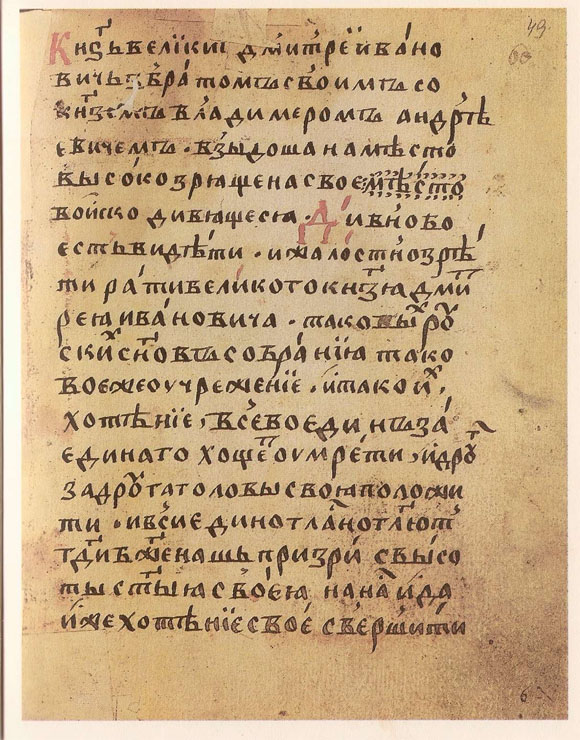 49
60
Кнѕ҃ь велїкиі дми́треи ива́но
вичь з бра́томъ своимъ со
кнѕ҃емъ влади мером андрѣ
евичемъ · взыдоша на мѣсто
высоко зряще на свое мѣсто
войско дивяще ся · Ди́вно бо
есть видѣти · и жалостно зрѣ
ти ра́ти великого кнѕ҃ю дми
рею ива́новича · тако вы руⷭ
скиⷯ сн҃овъ собра́нїю тако
воежеоучрежениїе · и тако иⷯ
хотѣнїе, все́ во едины за́
единаго хощеⷮ оумре́ти , и дрꙋⷢ
за дрꙋга головы своя положи
ти · и вси единогла́но гл҃ютъ
гд҃и бж҃е нашь призри́ с высо
ты ст҃ыя своея́ на наⷭ и да
и́же хотѣнїе свое́ сверши́ти
6